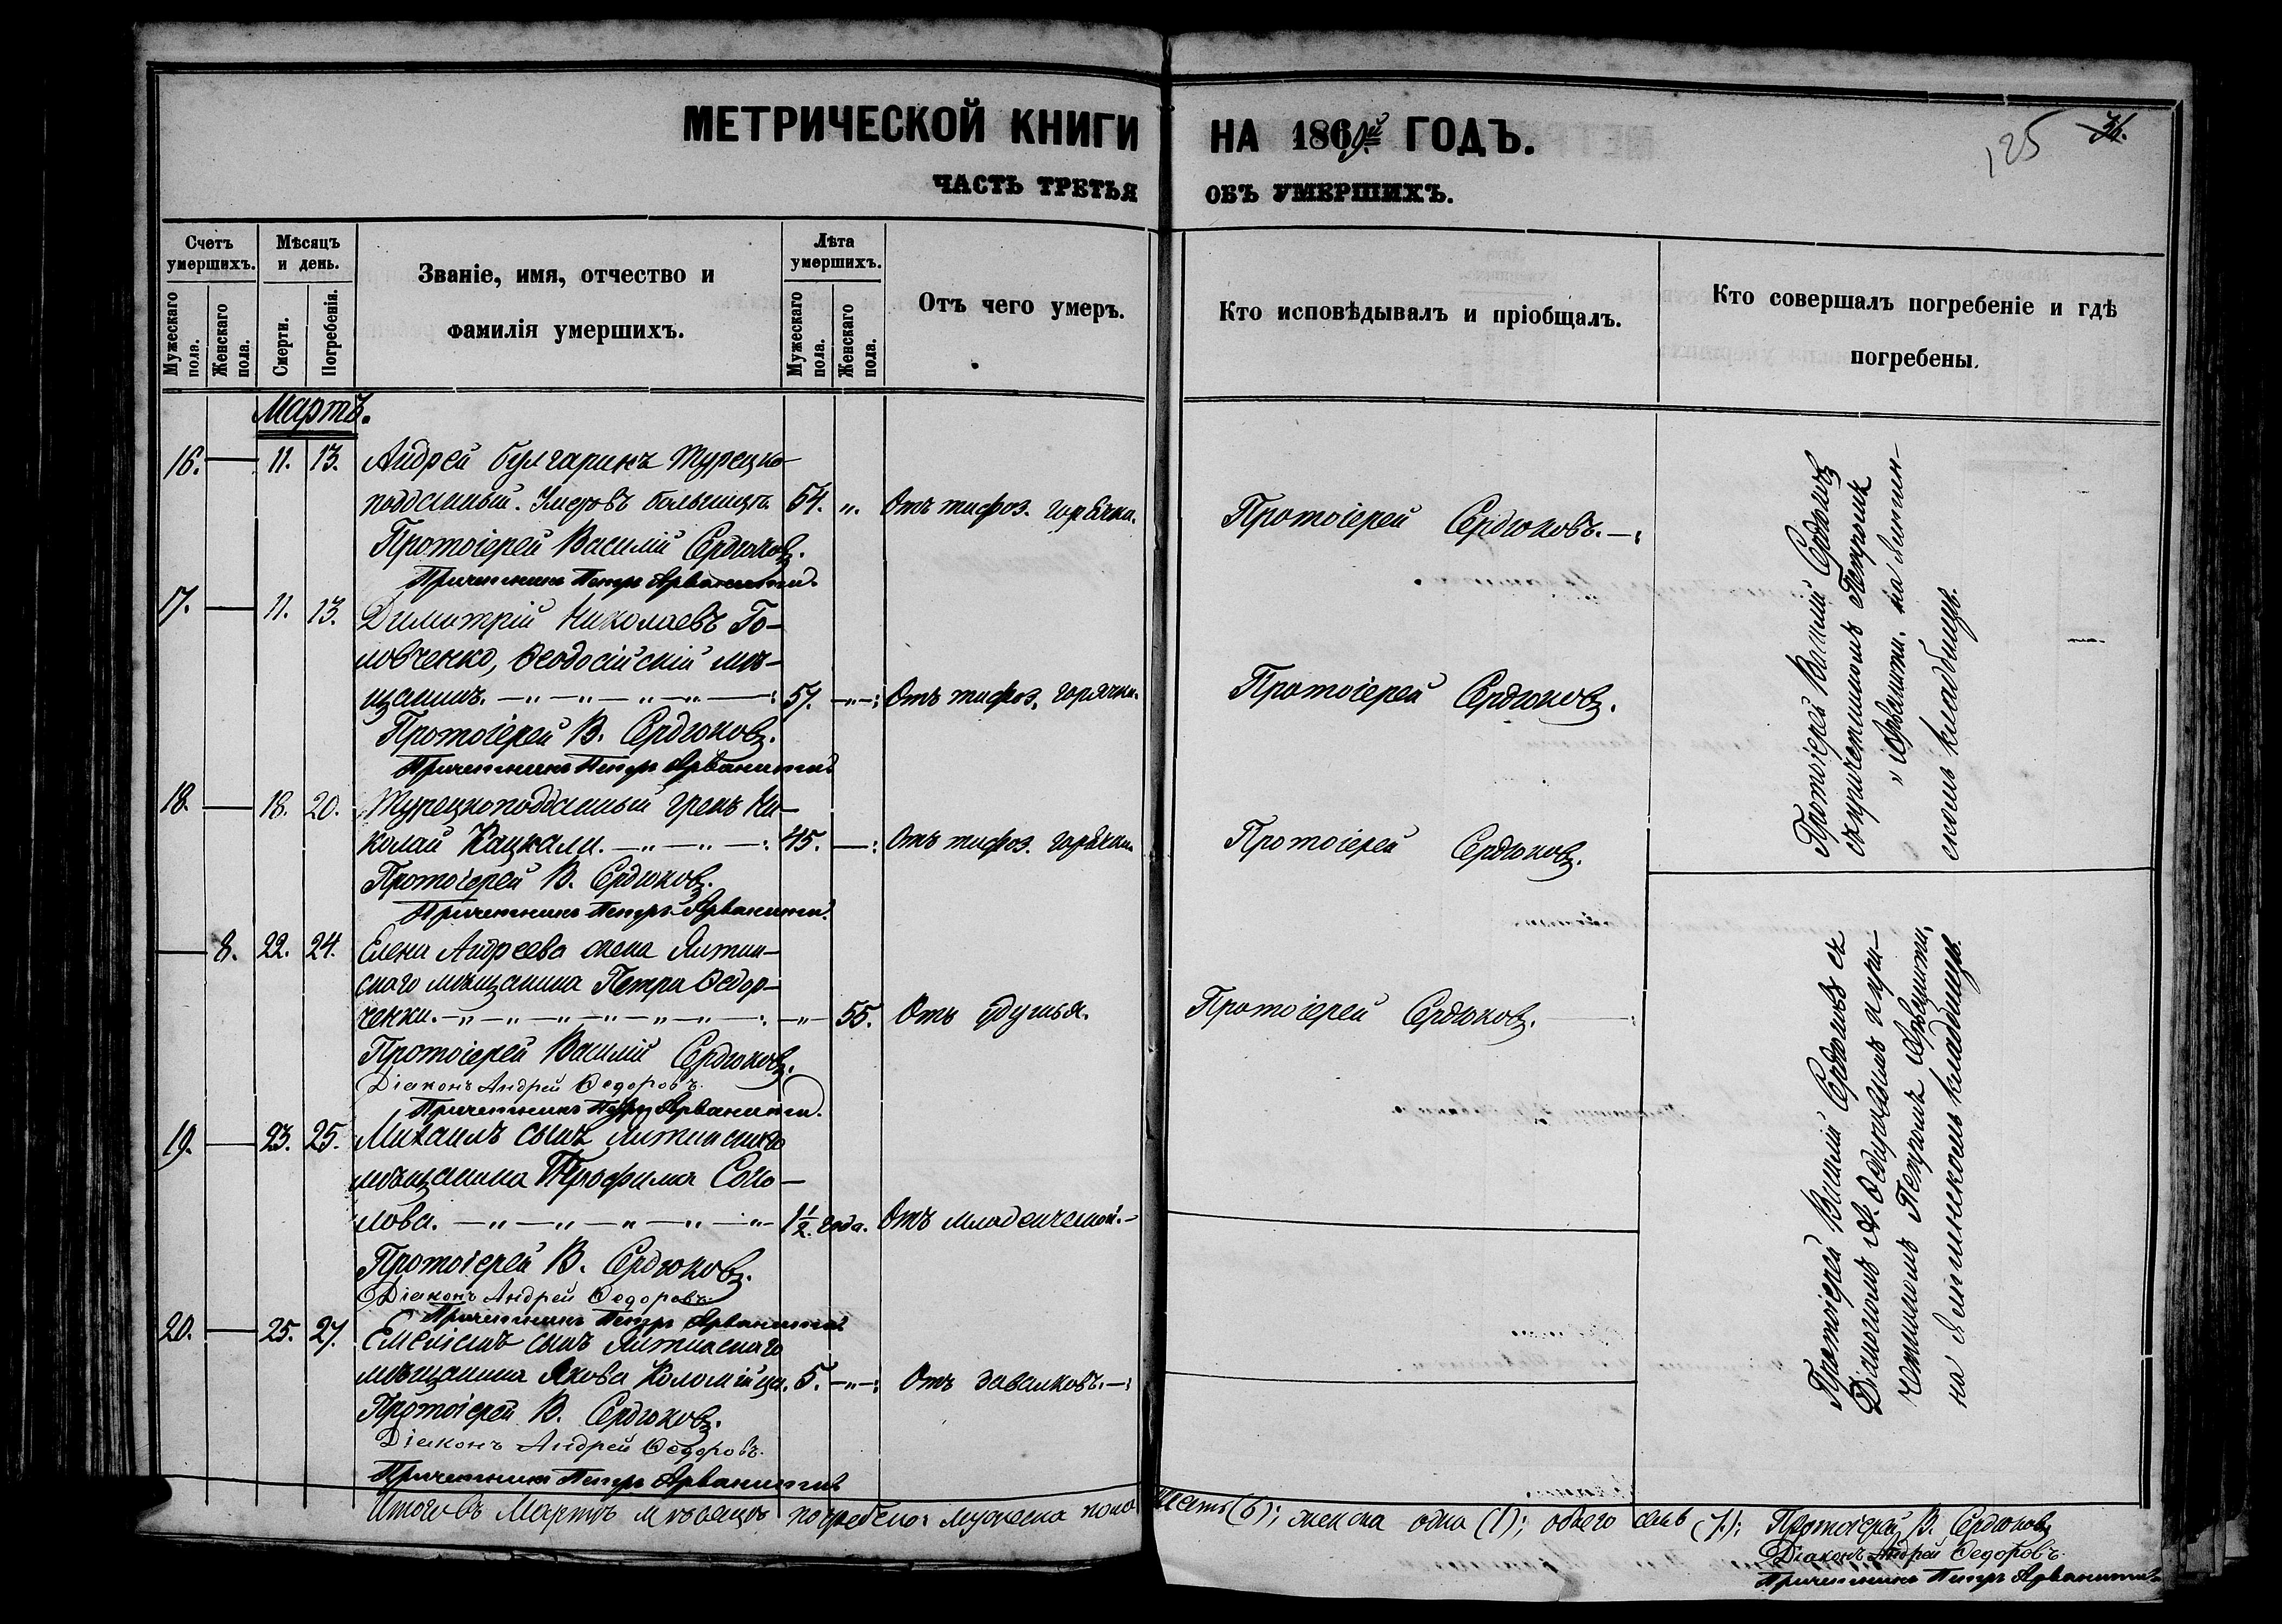 МЕТРИЧЕСКОЙ КНИГИ НА 1869й ГОДЪ.
ЧАСТЬ ТРЕТЬЯ ОБЪ УМЕРШИХЪ.
125
Счетъ умершихъ.
Мужескаго пола.
Женскаго пола.
Мѣсяцъ и день.
Смерти.
Погребенія.
Званіе, имя, отчество и
фамилія умершихъ.
Лѣта умершихъ.
Мужескаго пола.
Женскаго пола.
Отъ чего умеръ.
Кто исповѣдывалъ и пріобщалъ.
Кто совершалъ погребеніе и гдѣ
погребены.
Мартъ.
16. — 11. 13. Андрей булгаринъ Турецко-
подданный. Умеръ въ больницѣ. 54. „ Отъ тифоз. горячки. Протоіерей Сердюковъ.
Протоіерей Василій Сердюковъ.
Причетникъ Петръ Арванити.
17. — 11. 13. Димитрій Николаевъ Го-
ловченко, Ѳеодосійскій мѣ-
щанинъ. 57. Отъ тифоз. горячки. Протоіерей Сердюковъ.
Протоіерей В. Сердюковъ.
Причетникъ Петръ Арванити
18. — 18. 20. Турецкоподданный грекъ Ни-
колай Кацкали. 45. Отъ тифоз. горячки. Протоіерей Сердюковъ.
Протоіерей В. Сердюковъ.
Причетникъ Петръ Арванити.
Протоіерей Василій Сердюковъ
съ причетникомъ Петромъ
Арванити. на Ялтин-
скомъ кладбищѣ.
— 8. 22. 24. Елена Андреева жена Ялтин-
скаго мѣщанина Петра Ѳедор-
ченки. 55. Отъ удушья. Протоіерей Сердюковъ.
Протоіерей Василій Сердюковъ.
Діаконъ Андрей Ѳедоровъ.
Причетникъ Петръ Арванити.
19. — 23. 25. Михаилъ сынъ Ялтинскаго
мѣщанина Трофима Соко-
лова. 1½ года. Отъ младенческой.
Протоіерей В. Сердюковъ.
Діаконъ Андрей Ѳедоровъ.
Причетникъ Петръ Арванити
20. — 25. 27. сынъ Ялтинскаго
мѣщанина Якова Коломійца. 5. Отъ завалковъ.
Протоіерей В. Сердюковъ.
Діаконъ Андрей Ѳедоровъ.
Причетникъ Петръ Арванити
Протоіерей Василій Сердюковъ съ
Діакономъ А. Ѳедоровымъ и при-
четникомъ Петромъ Арванити,
на Ялтинскомъ кладбищѣ.
Итого въ Мартѣ мѣсяцѣ погребено: мужеска пола шесть (6); женска одна (1); обоего семь (7.); Протоіерей В. Сердюковъ
Діаконъ Андрей Ѳедоровъ.
Причетникъ Петръ Арванити